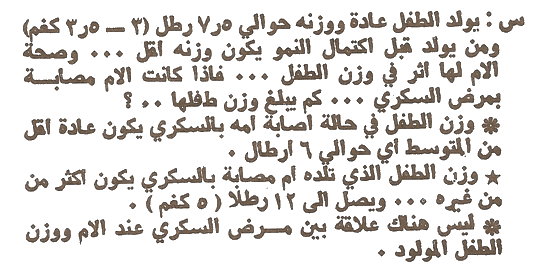 س : يولد الطفل عادة ووزنه حوالي ٥ر٧ رطل (٣ — ٥ر٣ كغم)
ومن يولد قبل اكتمال النمو يكون وزنه اقل ٠٠٠ وصحة
الام لها أثر في وزن الطفل ٠٠٠ فاذا كانت الام مصابــة
بمرض السكري ٠٠٠ كم يبلغ وزن طفلها ٠٠ ؟
* وزن الطفل في حالة اصابة امه بالسكري يكون عادة اقل
من المتوسط أي حوالي ٦ ارطال ٠
★ وزن الطفل الذي تلده ام مصابة بالسكري يكون اكثر من
من غيره ٠٠٠ ويصل الى ١٢ رطلا ( ٥ كغم ) ٠
* ليس هناك علاقة بين مــرض السكري عند الام ووزن
الطفل المولود ٠